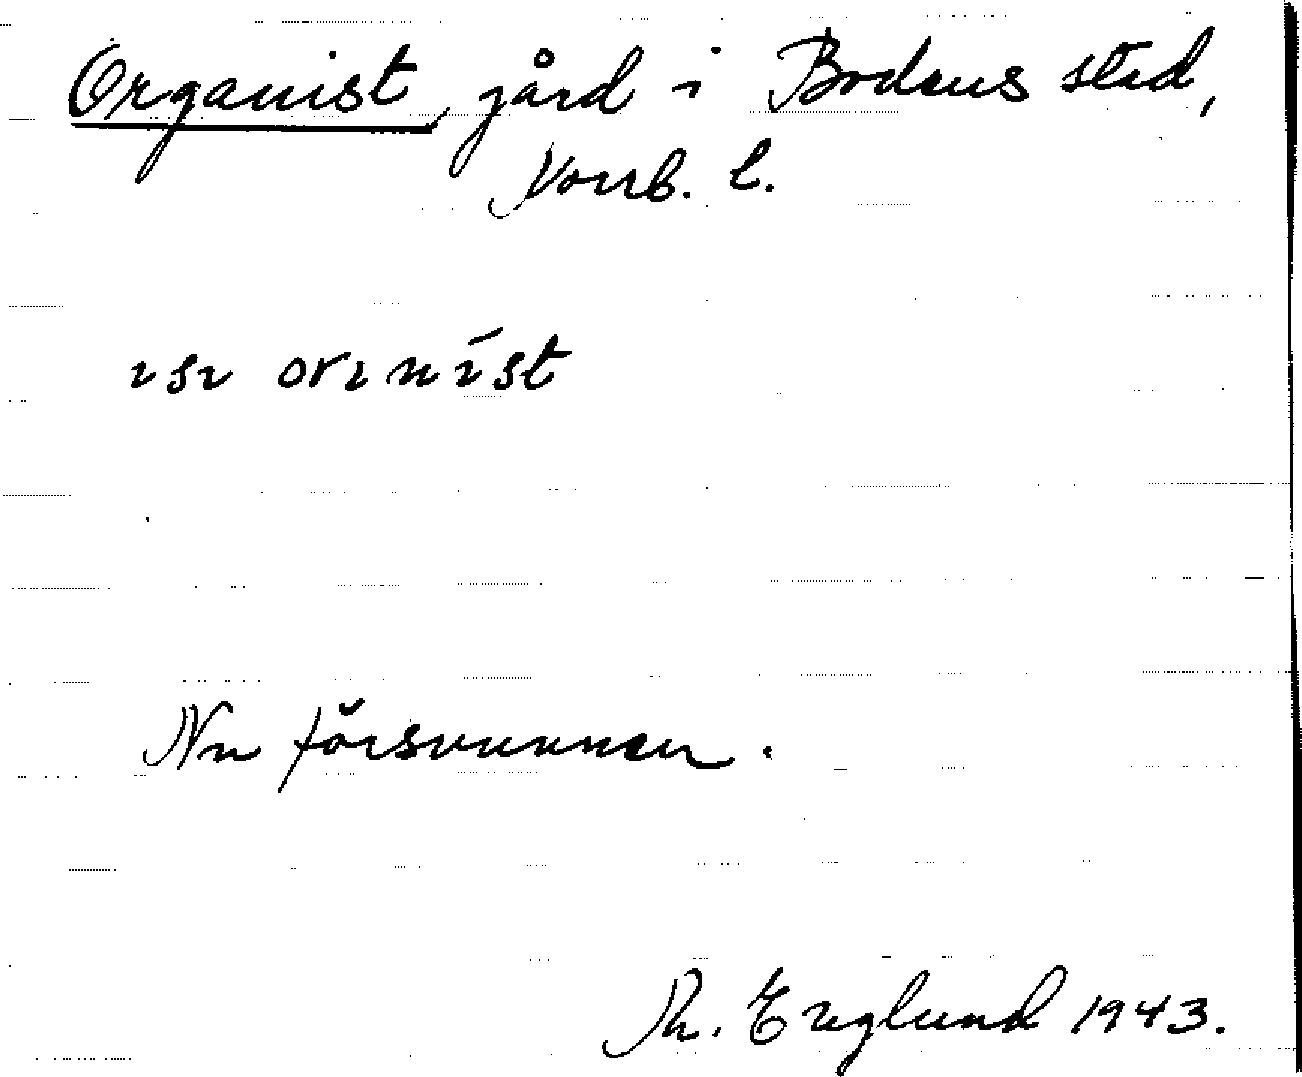 Organist, gård i Bodens stad,
Norrb. l.
ısı orıníst
Nu försvunnen.
Th. Englund 1943.